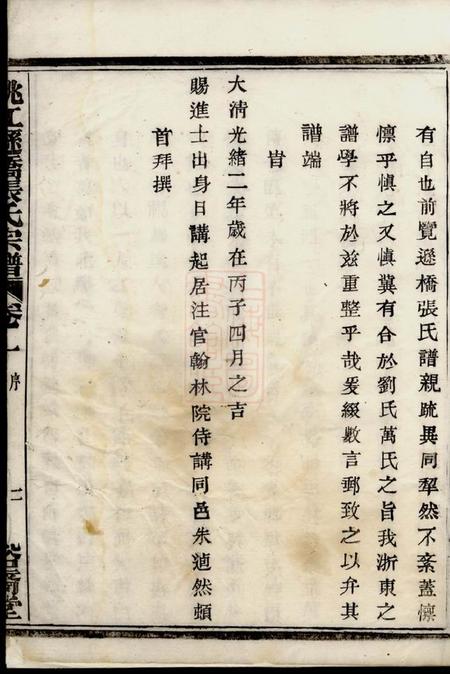 有自也前覽遜橋張氏譜親疏異同犁然不紊蓋懔
懔乎慎之又慎冀有合於劉氏萬氏之旨我浙東之
譜學不將於茲重整乎哉爰綴數言郵致之以弁其
譜端
旹
大清光緒二年歲在丙子四月之吉
賜進士出身日講起居注官翰林院侍講同邑朱逌然頓
首拜撰
姚江遜橋張氏宗譜
卷一
序
二